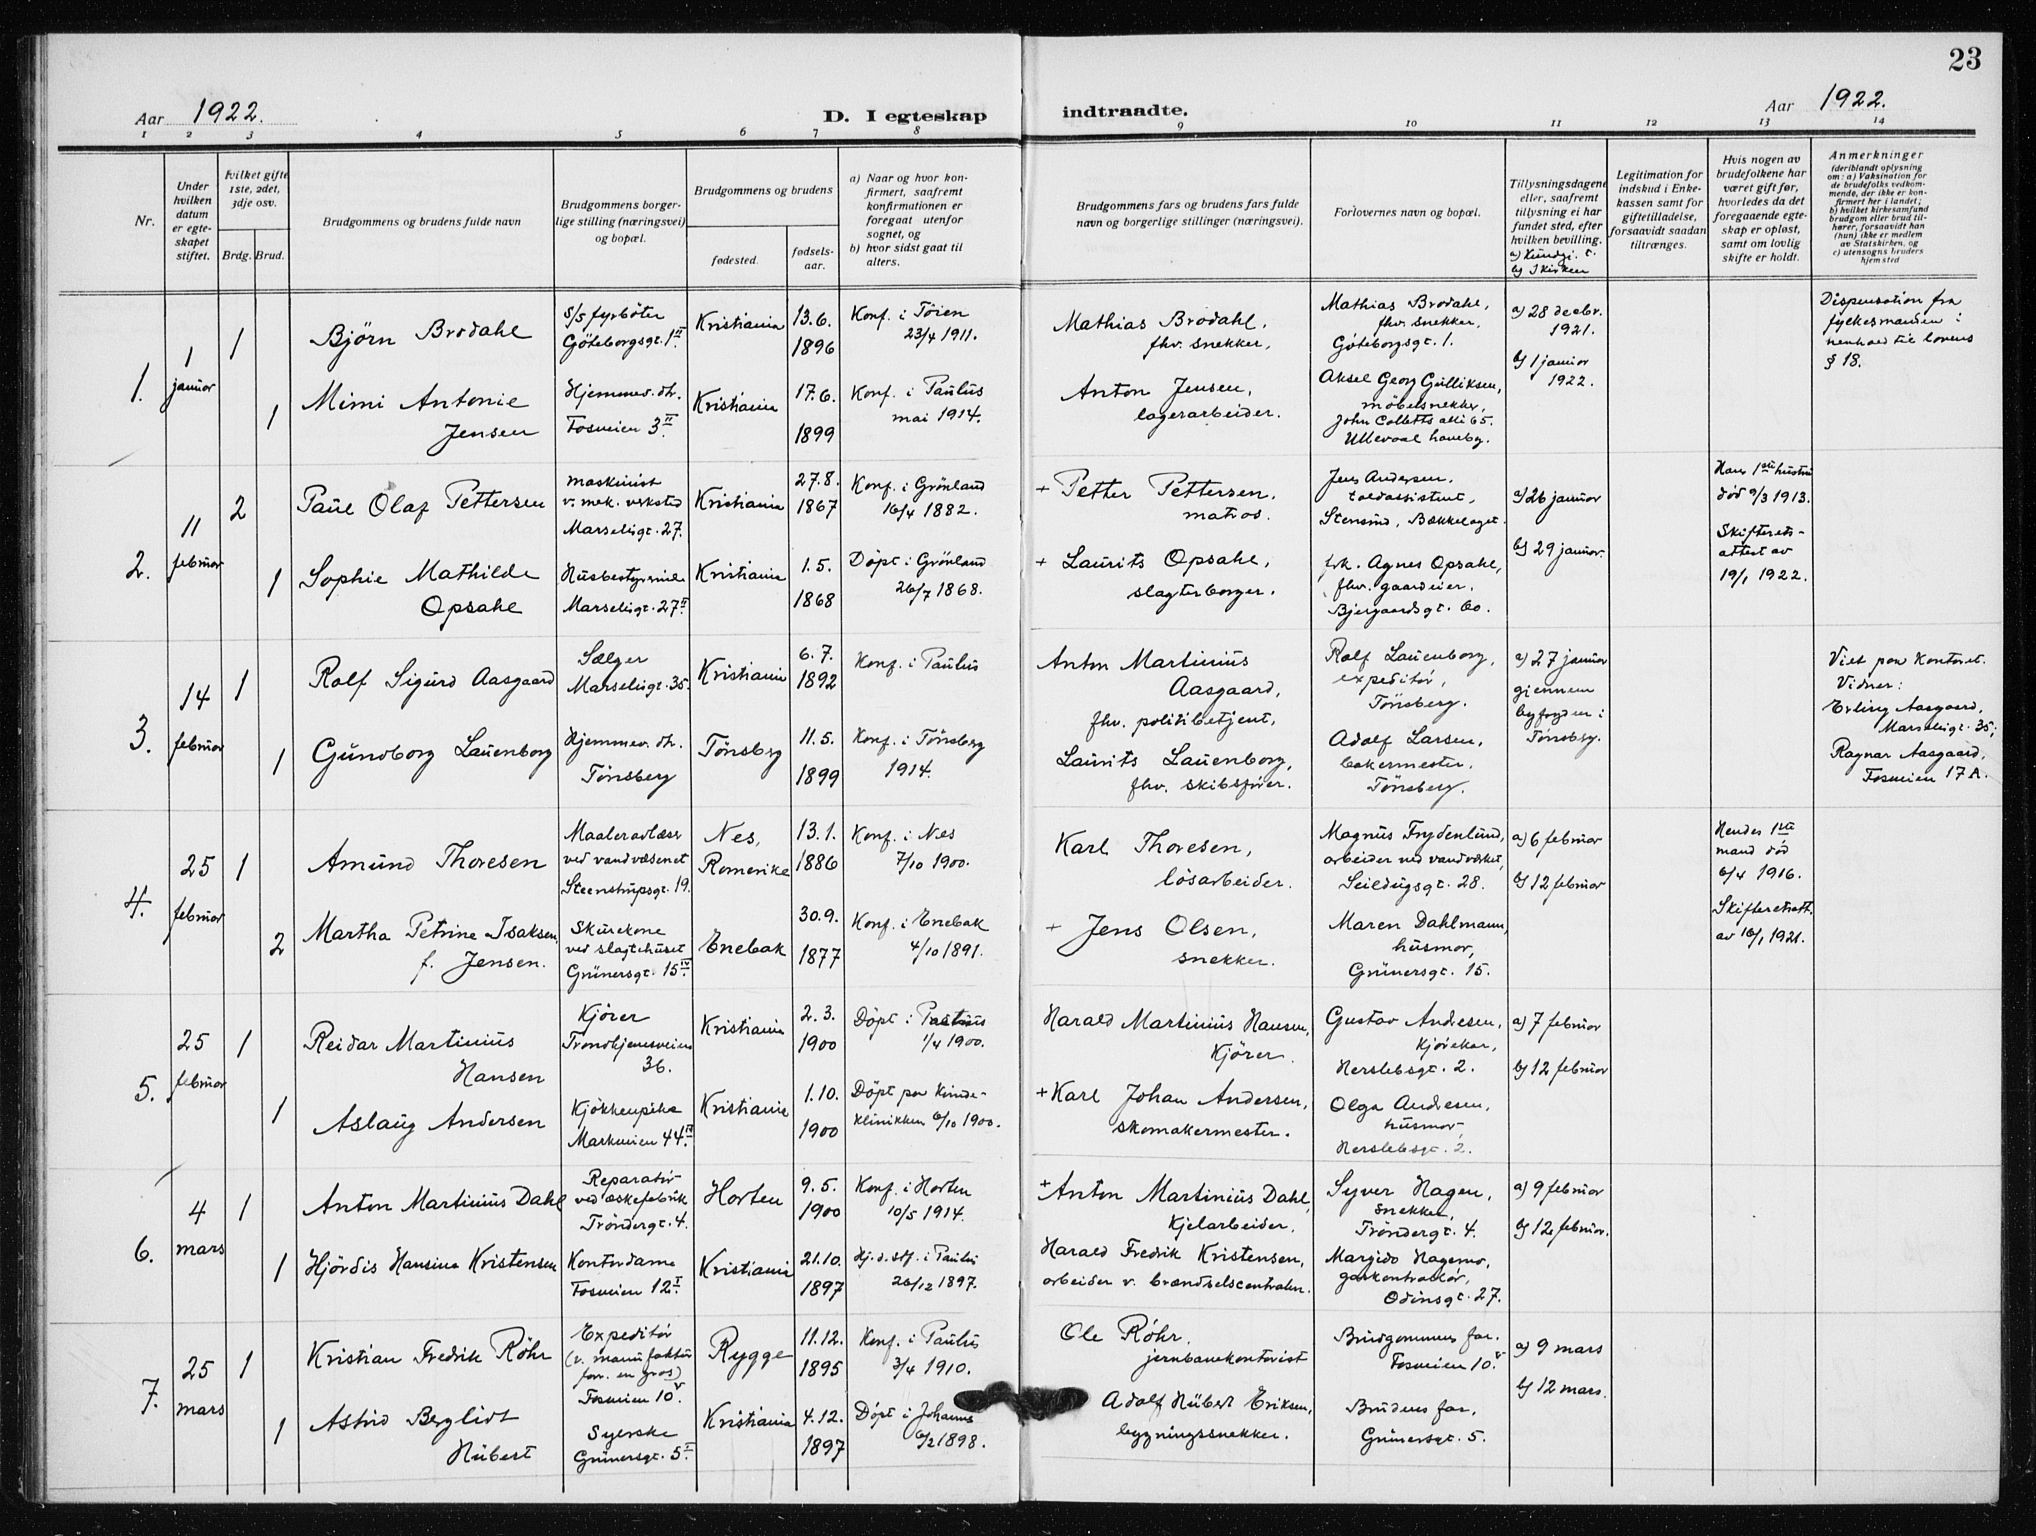 23
Aar 1922. D. I egteskap indtraadte. Aar 1922.
1 2 3 4 5 6 7 8 9 10 11 12 13 14
Nr.
Under
hvilken
datum
er egte-
skapet
stiftet.
Hvilket gifte
1ste, 2det,
3dje osv.
Brdg. Brud.
Brudgommens og brudens fulde navn
Brudgommens borger-
lige stilling (næringsvei)
og bopæl.
Brudgommens og brudens
fødested.
fødsels-
aar.
a) Naar og hvor kon-
firmert, saafremt
konfirmationen er
foregaat utenfor
sognet, og
b) hvor sidst gaat til
alters.
Brudgommens fars og brudens fars fulde
navn og borgerlige stillinger (næringsvei).
Forlovernes navn og bopæl.
Tillysningsdagene
eller, saafremt
tillysning ei har
fundet sted, efter
hvilken bevilling.
b) I kirken
Legitimation for
indskud i Enke-
kassen samt for
giftetilladelse,
forsaavidt saadan
tiltrænges.
Hvis nogen av
brudefolkene har
været gift før,
hvorledes da det
foregaaende egte-
skap er opløst,
samt om lovlig
skifte er holdt.
Anmerkninger
(deriblandt oplysning
om: a) Vaksination for
de brudefolks vedkom-
mende, der ikke er kon-
firmert her i landet;
b) hvilket kirkesamfund
brudgom eller brud til-
hører, forsaavidt han
(hun) ikke er medlem
av Statskirken, og
c) utensogns bruders
hjemsted
1.
1
januar
1
Bjørn Brodahl
s/s fyrbøter
Gøteborgsgt. 1 II.
Kristiania
13.6.
1896
Konf. i Tøien
23/4 1911.
Mathias Brodahl,
fhv. snekker,
Mathias Brodahl,
fhv. snekker,
Gøteborgsgt. 1.
a) 28 decbr.
1921.
b) 1 januar
1922.
Dispensation fra
fylkesmanden i
henhold til lovens
§ 18.
1
Mimi Antonie
Jensen
Hjemmev. dtr.
Fosveien 3 II.
Kristiania
17.6.
1899
Konf. i Paulus
mai 1914.
Anton Jensen,
lagerarbeider.
Aksel Georg Gulliksen,
møbelsnekker,
John Colletts allé 65.
Ullevaal haveby.
2.
11
februar
2
Paul Olaf Pettersen
maskinist
v. mek. verksted
Marseligt. 27.
Kristiania
27.8.
1867
Konf. i Grønland
16/4 1882.
+ Petter Pettersen,
matros.
Jens Andersen,
toldassistent,
Stensund, Bækkelaget.
a) 26 januar
b) 29 januar.
Hans 1ste hustru
død 9/3 1913.
Skifterets-
attest av
19/1 1922.
1
Sophie Mathilde
Opsahl
Husbestyrerinde
Marseligt. 27 II
Kristiania
1.5.
1868
Døpt i Grønland
26/7 1868.
+ Laurits Opsahl,
slagterborger.
frk. Agnes Opsahl,
fhv. gaardeier.
Bjergaardsgt. 60.
3.
14
februar
1
Rolf Sigurd Aasgaard
Sælger
Marseligt. 35.
Kristiania
6.7.
1892
Konf. i Paulus
Anton Martinius
Aasgaard,
fhv. politibetjent,
Rolf Lauenborg,
expeditør,
Tønsberg.
a) 27 januar
gjennem
byfogden i
Tønsberg.
Viet paa kontoret.
Vidner:
Erling Aasgaard,
Marseligt. 35;
Ragnar Aasgaard,
Fosveien 17 A.
1
Gundborg Lauenborg
Hjemmev. dtr.
Tønsberg
Tønsberg
11.5.
1899
Konf. i Tønsberg
1914.
Laurits Lauenborg,
fhv. skibsfører.
Adolf Larsen,
bakermester,
Tønsberg.
4.
25
februar
1
Amund Thoresen
Maaleravlæser
ved vandvæsenet
Steenstrupsgt. 19.
Nes,
Romerike
13.1.
1886
Konf. i Nes
7/10 1900.
Karl Thoresen,
løsarbeider.
Magnus Frydenlund,
arbeider ved vandverket,
Seildugsgt. 28.
a) 6 februar
b) 12 februar
Hendes 1ste
mand død
6/4 1916.
Skifteretsatt.
av 16/1 1921.
2
Martha Petrine Isaksen
f. Jensen.
Skurekone
ved slagtehuset
Grünersgt. 15 IV
Enebak
30.9.
1877
Konf. i Enebak
4/10 1891.
+ Jens Olsen,
snekker.
Maren Dahlmann,
husmor,
Grünersgt. 15.
5.
25
februar
1
Reidar Martinius
Hansen
Kjører
Trondhjemsveien
36.
Kristiania
2.3.
1900
Døpt i Paulus
1/4 1900.
Harald Martinius Hansen,
Kjører.
Gustav Andresen,
Herslebsgt. 2.
a) 7 februar
b) 12 februar
1
Aslaug Andersen
Kjøkkenpike
Markveien 44 IV.
Kristiania
1.10.
1900
Døpt paa Kvinde-
klinikken 6/10 1900.
+ Karl Johan Andersen,
skomakermester.
Olga Andresen,
husmor,
Herslebsgt. 2.
6.
4
mars
1
Anton Martinius Dahl
Reparatør
ved æskefabrik
Trøndergt. 4.
Horten
9.5.
1900
Konf. i Horten
10/5 1914.
+ Anton Martinius Dahl,
Kjelarbeider,
Syver Hagen,
snekker,
Trøndergt. 4.
a) 9 februar
b) 12 februar.
1
Hjørdis Hansine Kristensen
Kontordame
Fosveien 12 I.
Kristiania
21.10.
1897
Hj. d. stf. i Paulus
26/12 1897.
Harald Fredrik Kristensen,
arbeider v. brændselscentralen.
Margido Hagemo,
gaskontrollør,
Odinsgt. 27.
7.
25
mars
1
Kristian Fredrik Røhr
Expeditør
(v. manufaktur
forr. en gros)
Fosveien 10 V
Rygge
11.12.
1895
Konf. i Paulus
3/4 1910.
Ole Røhr,
jernbanekontorist
Brudgommens far.
Fosveien 10 V
a) 9 mars
b) 12 mars.
1
Astrid Bergliot
Hubert
Syerske
Grünersgt. 5 II.
Kristiania
4.12.
1897
Døpt i Johannes
6/2 1898.
Adolf Hubert Eriksen,
bygningssnekker.
Brudens far,
Grünersgt. 5.